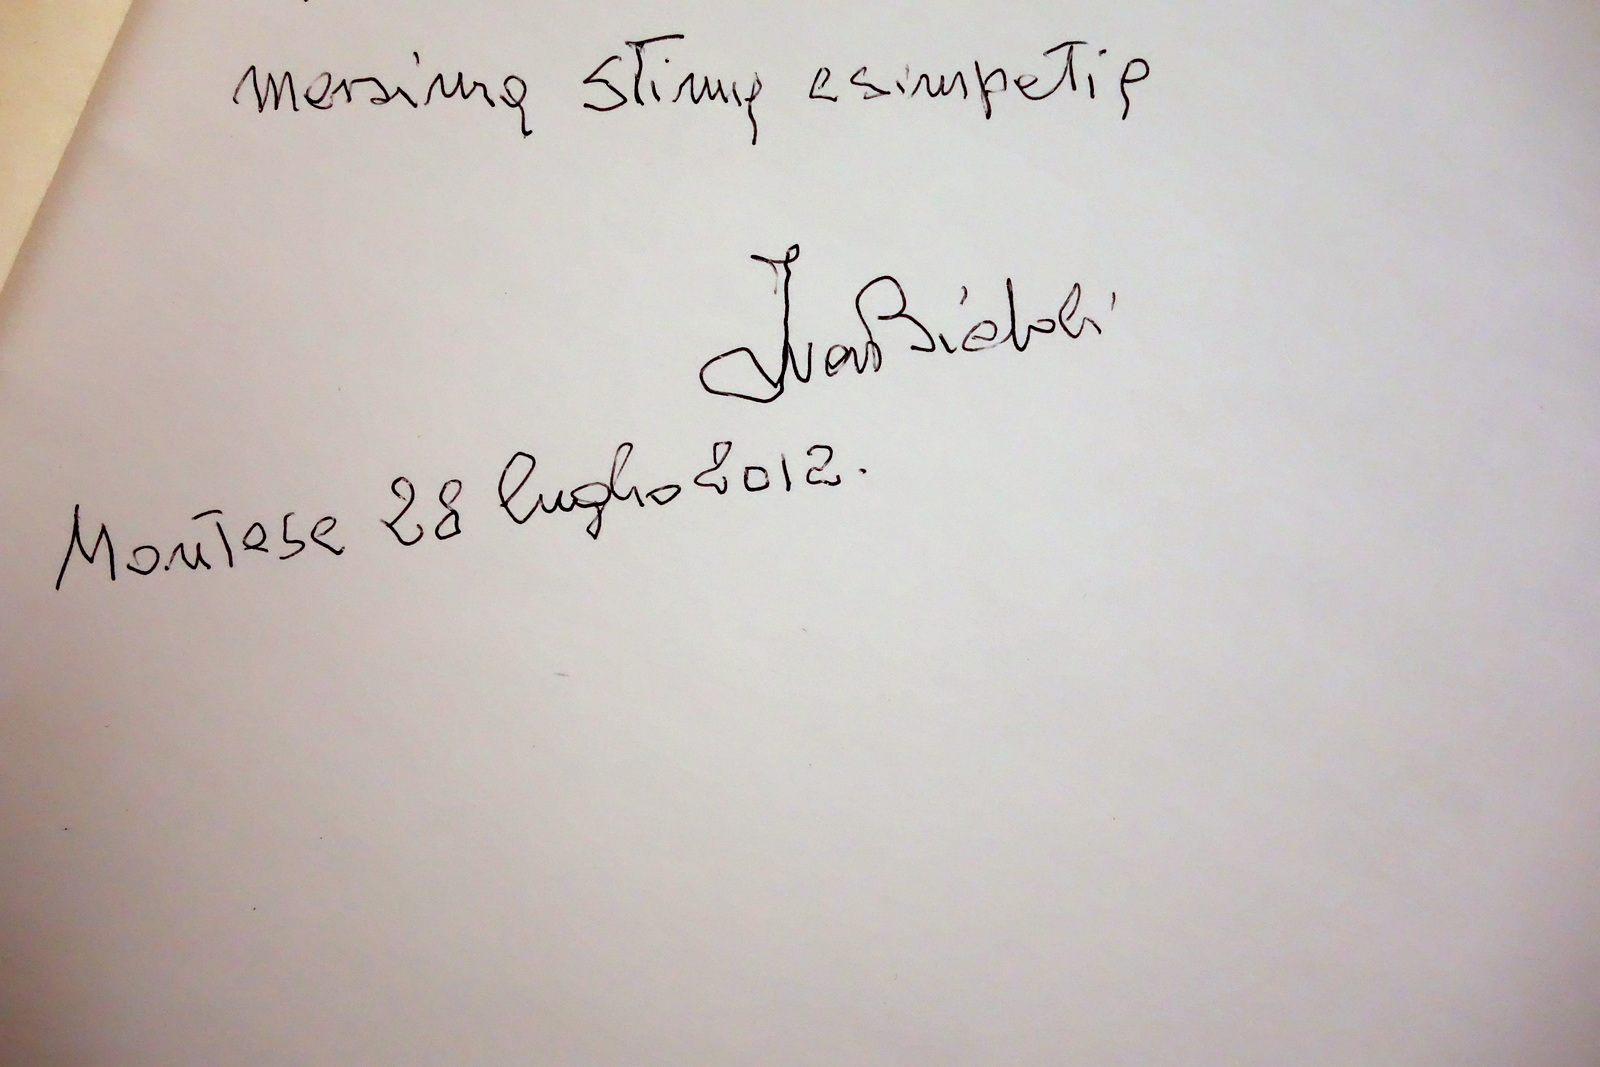 massima stima e simpatia
Ivan
Montese 28 luglio 2012.